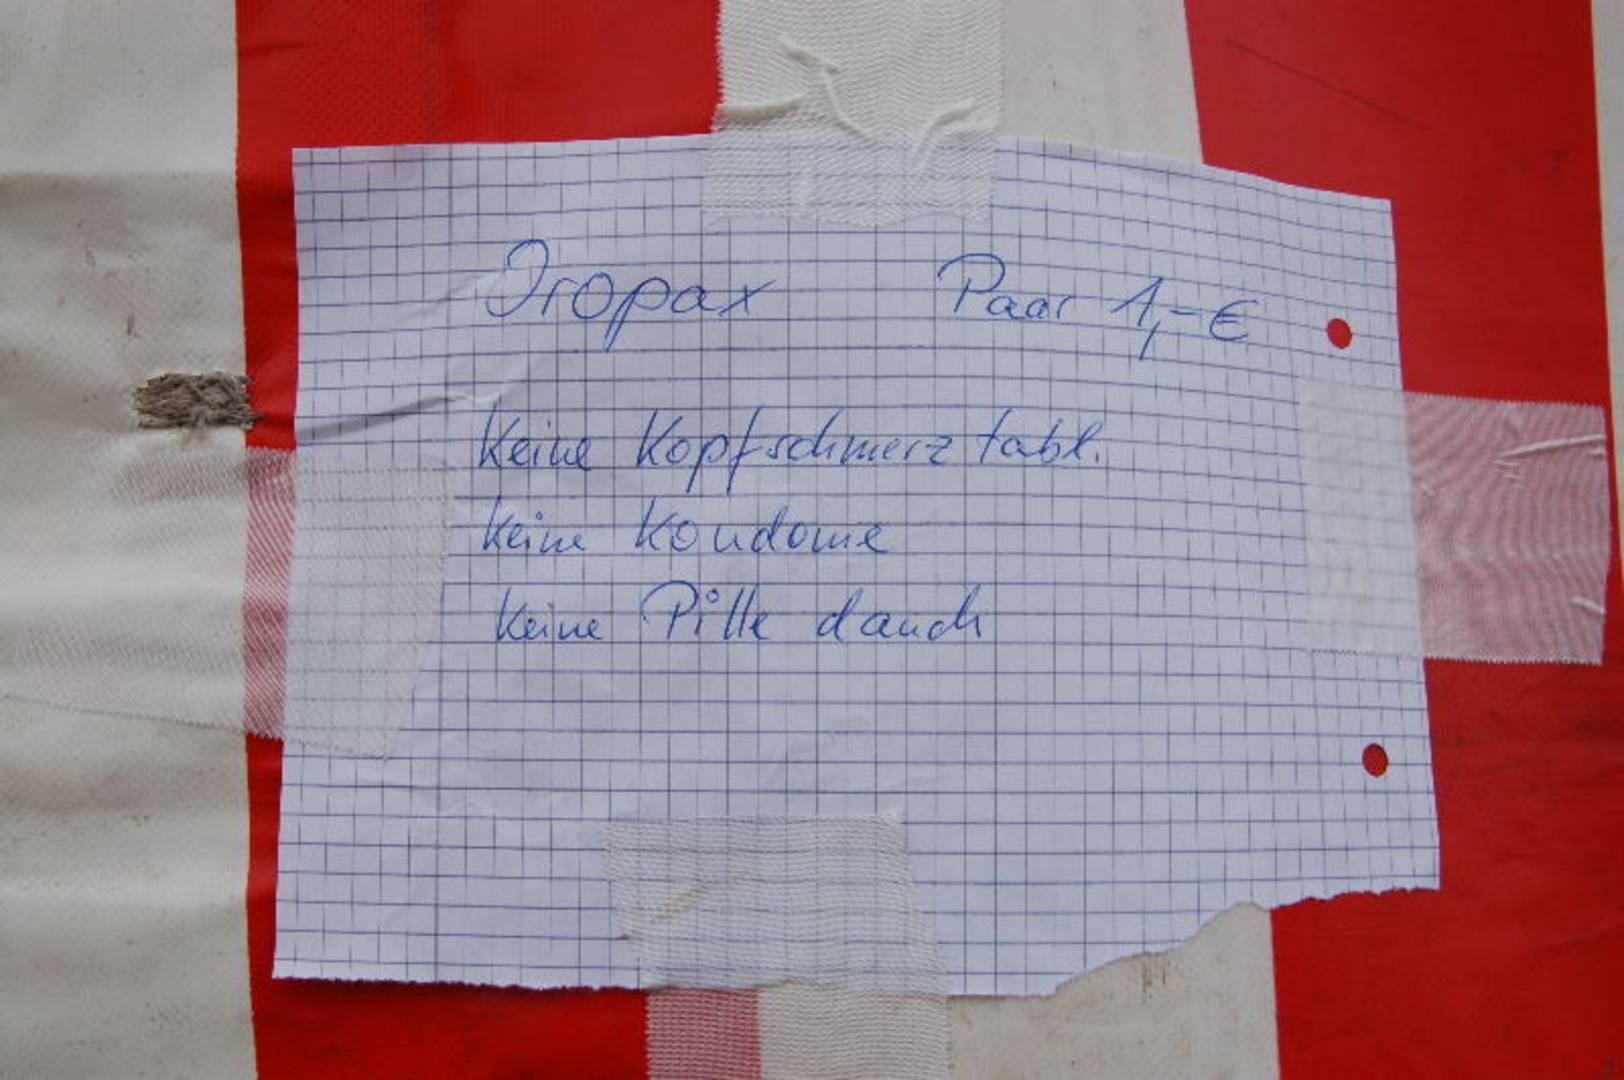 Oropax Paar 1,-€
Keine Kopfschmerztabl.
Keine Kondome
Keine Pille danch